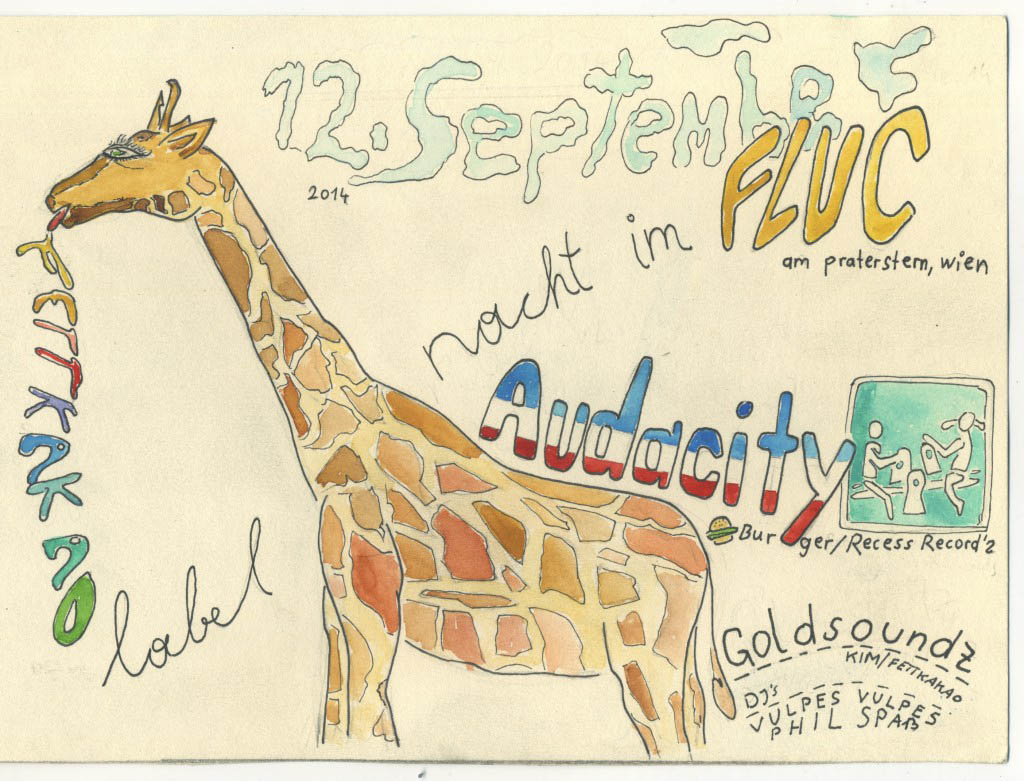 12. September
2014
FLUC
am praterstern, wien
nacht im
FETTKAKAO
label
Audacity
Burger/Recess Record's
Goldsoundz
KIM/FETTKAKAO
DJ's
VULPES VULPES
PHIL SPA